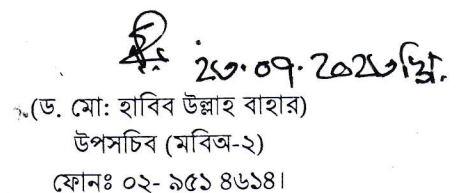 ২৩.০৭.২০২৩ খ্রি.
(ড. মো: হাবিব উল্লাহ বাহার)
উপসচিব (মবিঅ-২)
ফোনঃ ০২- ৯৫১ ৪৬১৪।